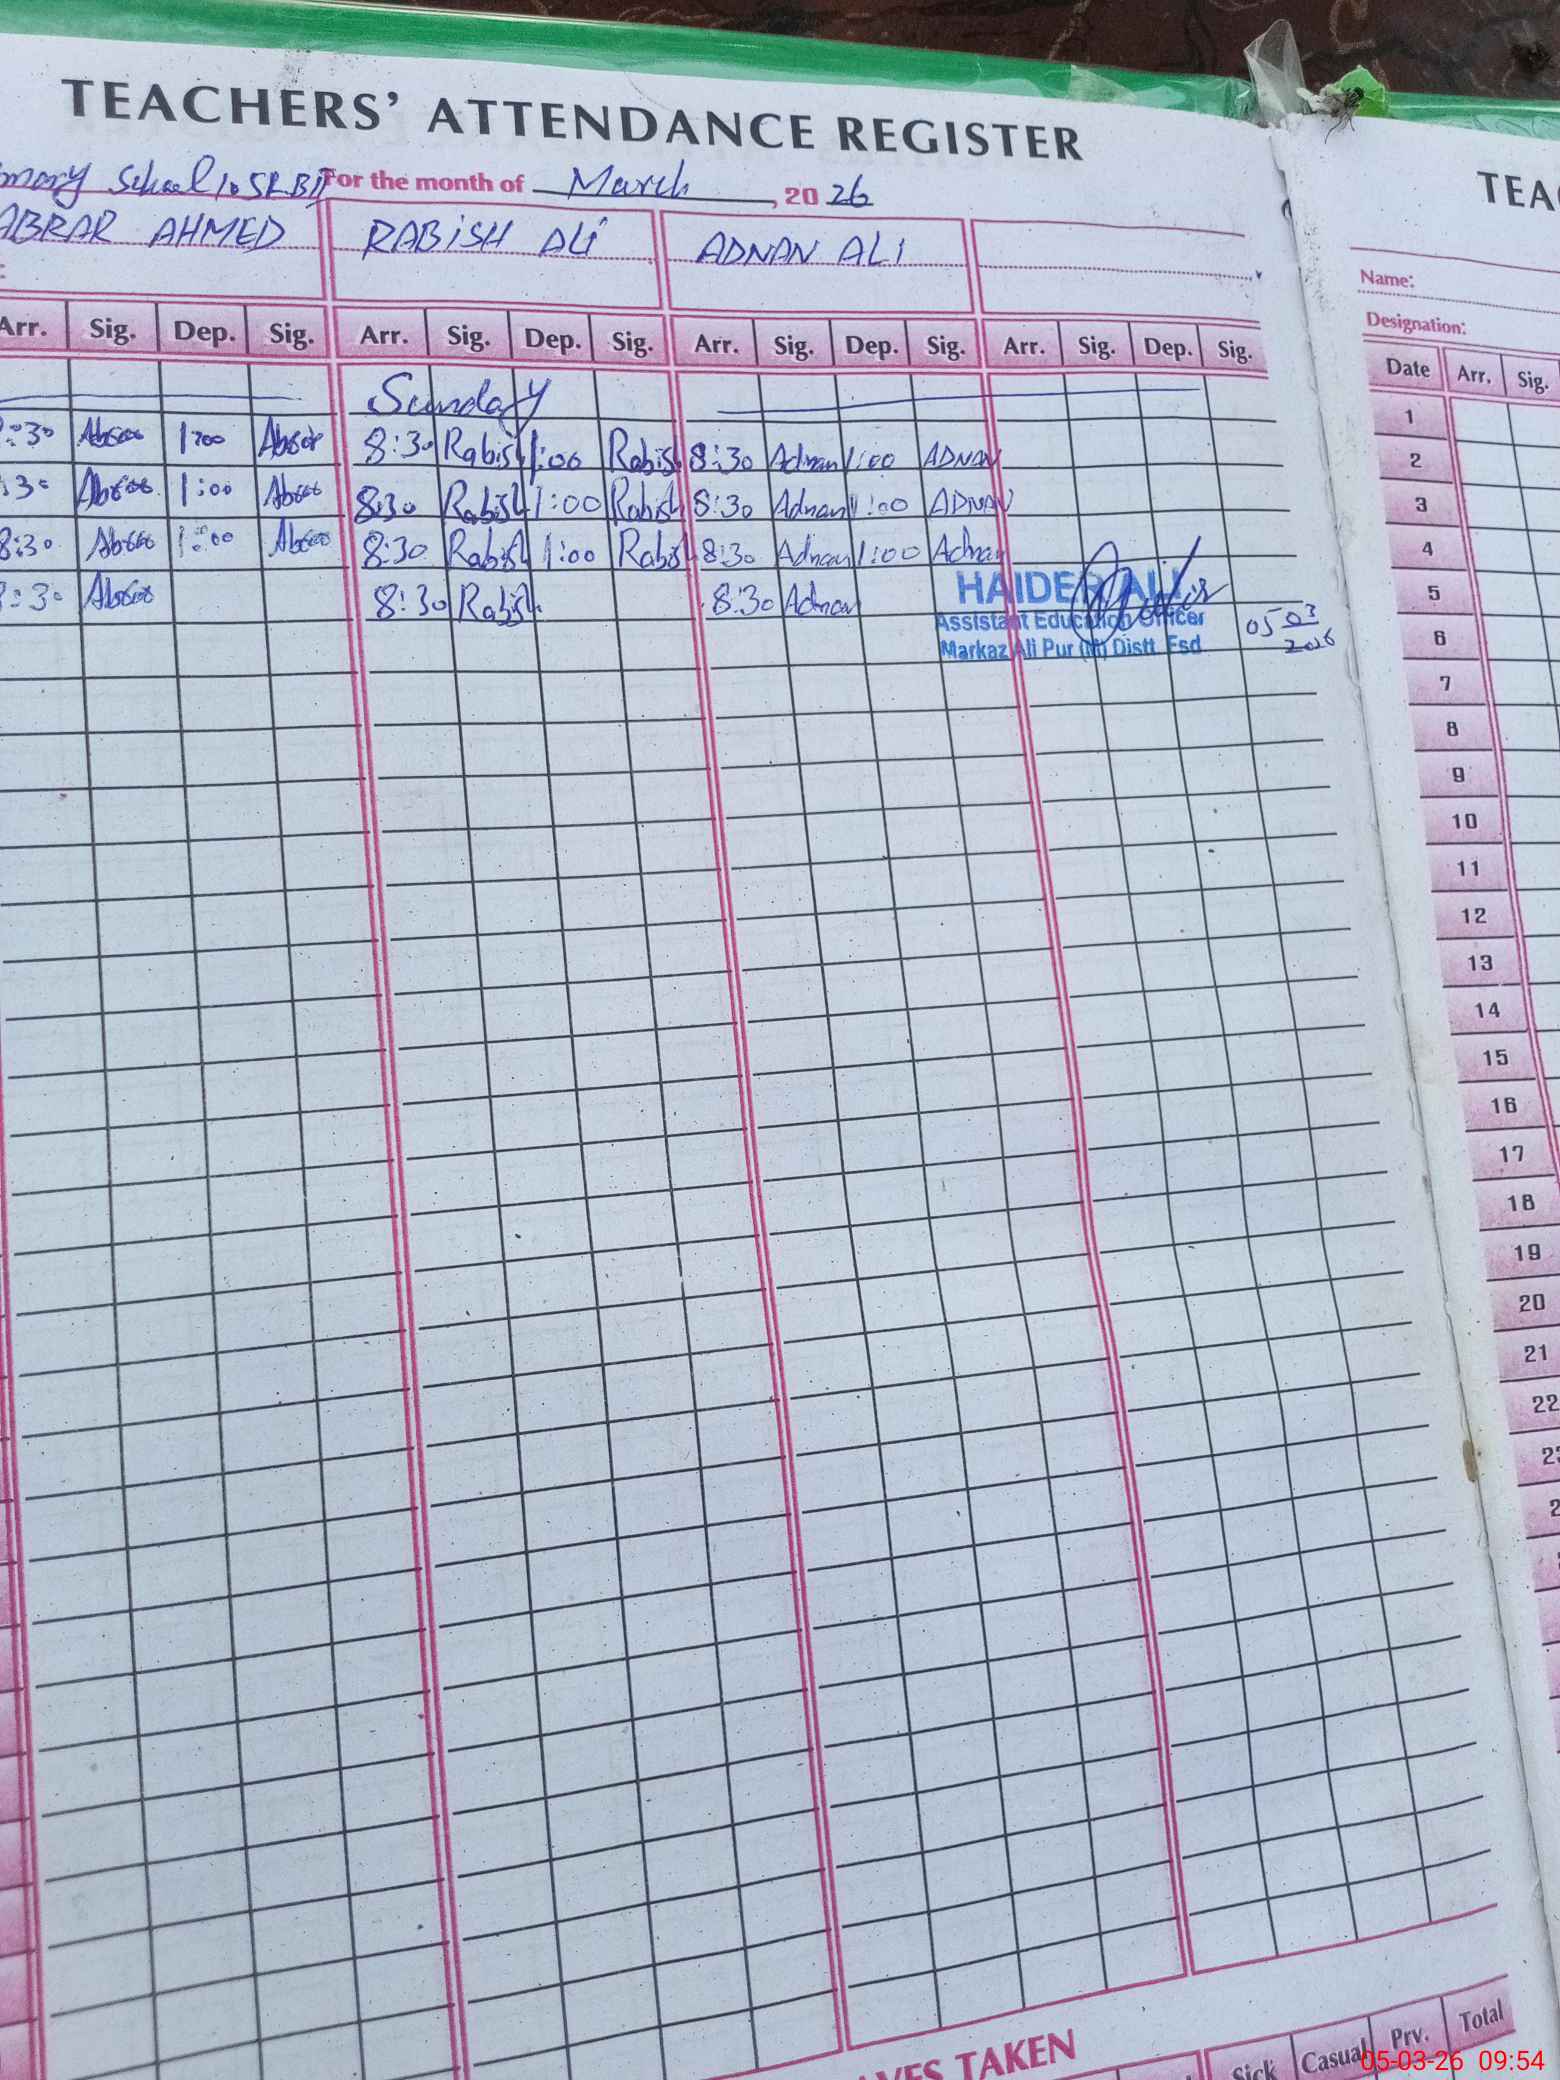 TEACHERS' ATTENDANCE REGISTER
School For the month of March, 2026
ABRAR AHMED RABISH ALI ADNAN ALI
Arr. Sig. Dep. Sig. Arr. Sig. Dep. Sig. Arr. Sig. Dep. Sig. Arr. Sig. Dep. Sig.
Sunday
1:00 8:30 Rabish 1:00 Rabish 8:30 Adnan 1:00 ADNAN
1:00 8:30 Rabish 1:00 Rabish 8:30 Adnan 1:00 ADNAN
8:30 1:00 8:30 Rabish 1:00 Rabish 8:30 Adnan 1:00 Adnan
8:30 Rabish 8:30 Adnan
HAIDER ALI
Assistant Education Officer
Markaz Ali Pur (M) Distt. Fsd
05 03
2026
LEAVES TAKEN
Sick Casual Prv. Total
TEA
Name:
Designation:
Date Arr. Sig.
1
2
3
4
5
6
7
8
9
10
11
12
13
14
15
16
17
18
19
20
21
22
05-03-26 09:54